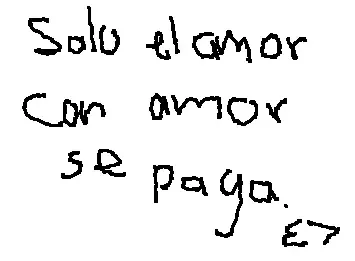 Solo el amor
con amor
se paga.
E7